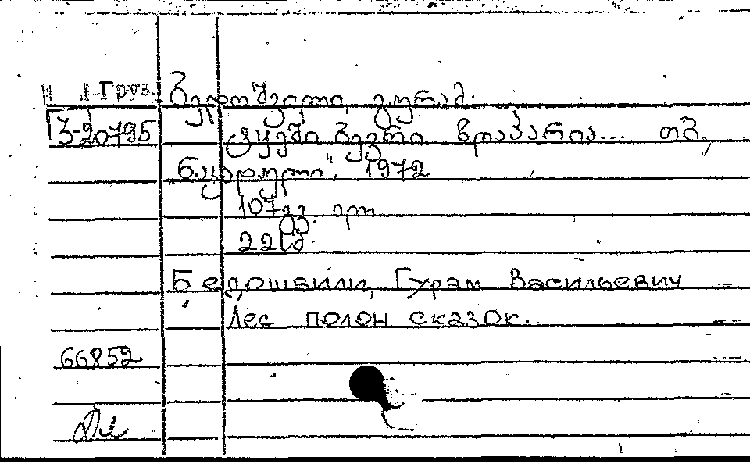 Груз. ბედოშვილი, გურამ.
Г3-20795 ტყეში ბევრი ზღაპარია... თბ.,
ნაკადული, 1972
107 გვ. ილ.
22 სმ.
Бедошвили, Гурам Васильевич
Лес полон сказок.
66852